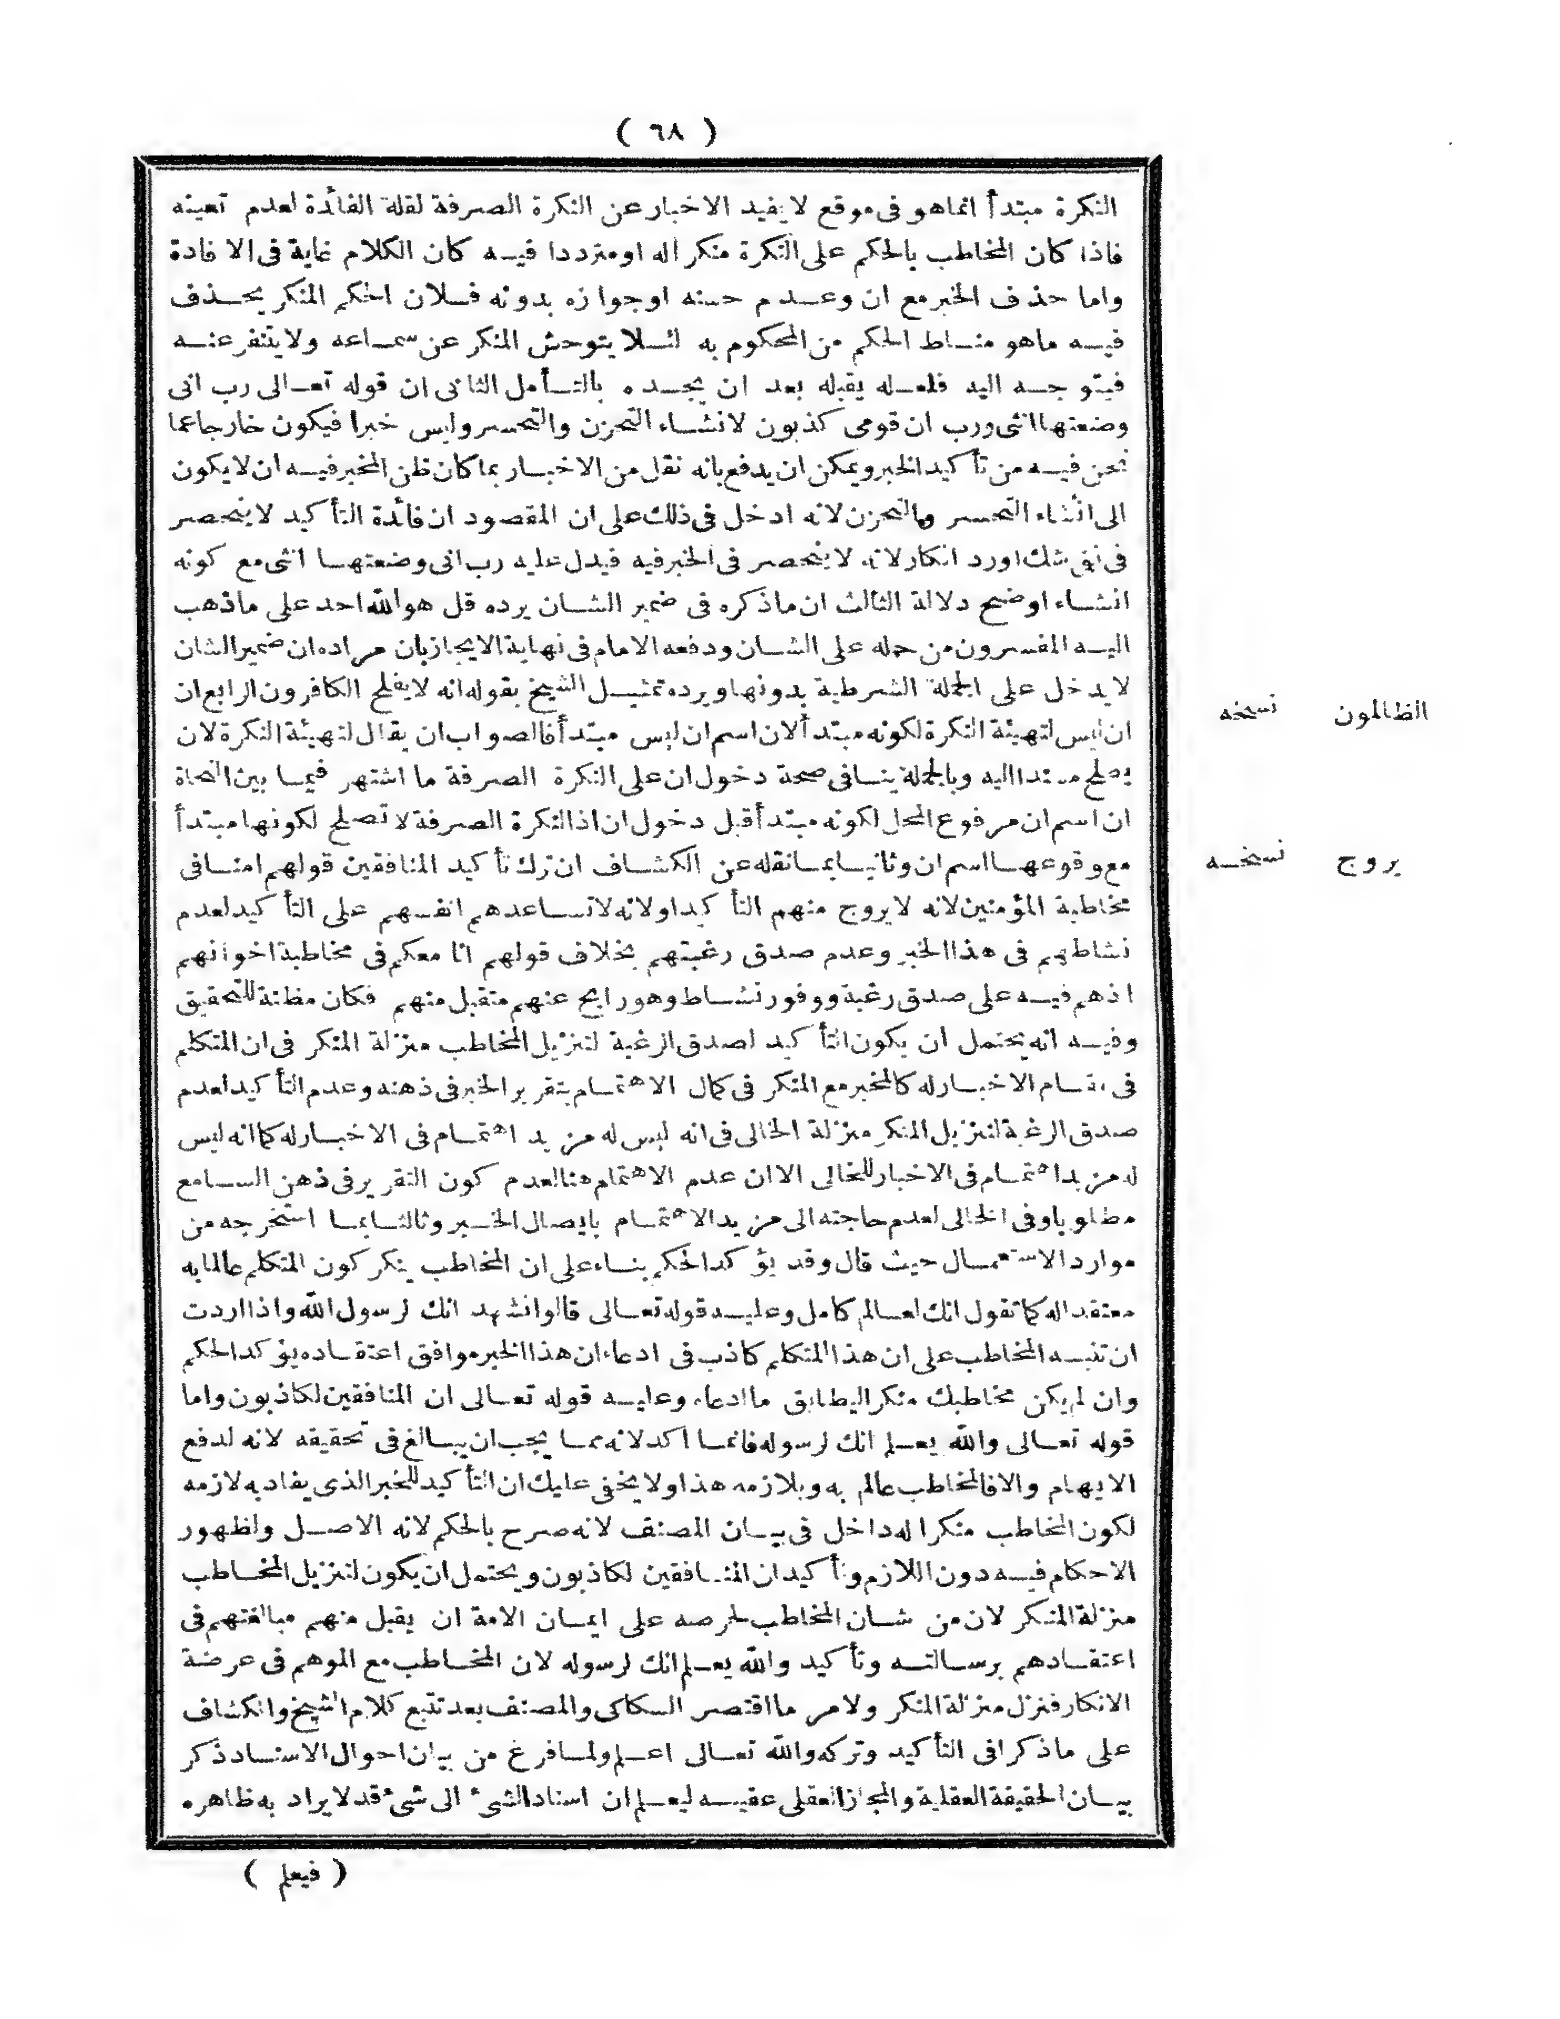 ( ٦٨ )
النكرة مبتدأ انماهو فى موقع لا يفيد الاخبار عن النكرة الصرفة لقلة الفائدة لعدم تعينه
فاذا كان المخاطب بالحكم على النكرة منكرا له او مترددا فيه كان الكلام غاية فى الافادة
واما حذف الخبر مع ان وعدم حسنه او جوازه بدونه فلان الحكم المنكر يحذف
فيه ماهو مناط الحكم من المحكوم به لئلا يتوحش المنكر عن سماعه ولا يتنفر عنه
فيتوجه اليه فلعله يقبله بعد ان يجده بالتأمل الثانى ان قوله تعالى رب انى
وضعتها انثى ورب ان قومى كذبون لانشاء التحزن والتحسر وليس خبرا فيكون خارجا عما
نحن فيه من تأكيد الخبر ويمكن ان يدفع بانه نقل من الاخبار بما كان ظن المخبر فيه ان لا يكون
الى انشاء التحسر والتحزن لانه ادخل فى ذلك على ان المقصود ان فائدة التأكيد لا ينحصر
فى نفى شك اورد انكار لانه لا ينحصر فى الخبر فيه فيدل عليه رب انى وضعتها انثى مع كونه
انشاء اوضح دلالة الثالث ان ماذكره فى ضمير الشان يرده قل هو الله احد على ماذهب
اليه المفسرون من حمله على الشان ودفعه الامام فى نهاية الايجاز بان مراده ان ضمير الشان
لا يدخل على الجملة الشرطية بدونها ويرده تمثيل الشيخ بقوله انه لا يفلح الكافرون الرابع ان
ان ليس لتهيئة النكرة لكونه مبتدأ لان اسم ان ليس مبتدأ فالصواب ان يقال لتهيئة النكرة لان
يصلح مسندا اليه وبالجملة ينافى صحة دخول ان على النكرة الصرفة ما اشتهر فيما بين النحاة
ان اسم ان مرفوع المحل لكونه مبتدأ قبل دخول ان اذ النكرة الصرفة لا تصلح لكونها مبتدأ
مع وقوعها اسم ان وثانيا بما نقله عن الكشاف ان ترك تأكيد المنافقين قولهم امنا فى
مخاطبة المؤمنين لانه لا يروج منهم التأكيد او لانه لا تساعدهم انفسهم على التأكيد لعدم
نشاطهم فى هذا الخبر وعدم صدق رغبتهم بخلاف قولهم انا معكم فى مخاطبة اخوانهم
اذهم فيه على صدق رغبة ووفور نشاط وهو رايج عنهم متقبل منهم فكان مظنة للتحقيق
وفيه انه يحتمل ان يكون التأكيد لصدق الرغبة لتنزيل المخاطب منزلة المنكر فى ان المتكلم
فى مقام الاخبار له كالمخبر مع المنكر فى كمال الاهتمام بتقرير الخبر فى ذهنه وعدم التأكيد لعدم
صدق الرغبة لتنزيل المنكر منزلة الخالى فى انه ليس له مزيد اهتمام فى الاخبار له كما انه ليس
له مزيد اهتمام فى الاخبار للخالى الا ان عدم الاهتمام هنا لعدم كون التقرير فى ذهن السامع
مطلوبا وفى الخالى لعدم حاجته الى مزيد الاهتمام بايصال الخبر وثالثا بما استخرجه من
موارد الاستعمال حيث قال وقد يؤكد الحكم بناء على ان المخاطب ينكر كون المتكلم عالما به
معتقدا له كما تقول انك لعالم كامل وعليه قوله تعالى قالوا نشهد انك لرسول الله واذا اردت
ان تنبه المخاطب على ان هذا المتكلم كاذب فى ادعاء ان هذا الخبر موافق اعتقاده يؤكد الحكم
وان لم يكن مخاطبك منكرا ليطابق ما ادعاه وعليه قوله تعالى ان المنافقين لكاذبون واما
قوله تعالى والله يعلم انك لرسوله فانما اكد لانه مما يجب ان يبالغ فى تحقيقه لانه لدفع
الايهام والا فالمخاطب عالم به وبلازمه هذا ولا يخفى عليك ان التأكيد للخبر الذى يفاد به لازمه
لكون المخاطب منكرا له داخل فى بيان المصنف لانه صرح بالحكم لانه الاصل ولظهور
الاحكام فيه دون اللازم وتأكيد ان المنافقين لكاذبون ويحتمل ان يكون لتنزيل المخاطب
منزلة المنكر لان من شان المخاطب لحرصه على ايمان الامة ان يقبل منهم مبالغتهم فى
اعتقادهم برسالته وتأكيد والله يعلم انك لرسوله لان المخاطب مع الموهم فى عرضة
الانكار فنزل منزلة المنكر ولامر ما اقتصر السكاكى والمصنف بعد تتبع كلام الشيخ والكشاف
على ما ذكرا فى التأكيد وتركه والله تعالى اعلم ولما فرغ من بيان احوال الاسناد ذكر
بيان الحقيقة العقلية والمجاز العقلى عقيبه ليعلم ان اسناد الشئ الى شئ قد لا يراد به ظاهره
( فيعلم )
الظالمون نسخه
يروج نسخه